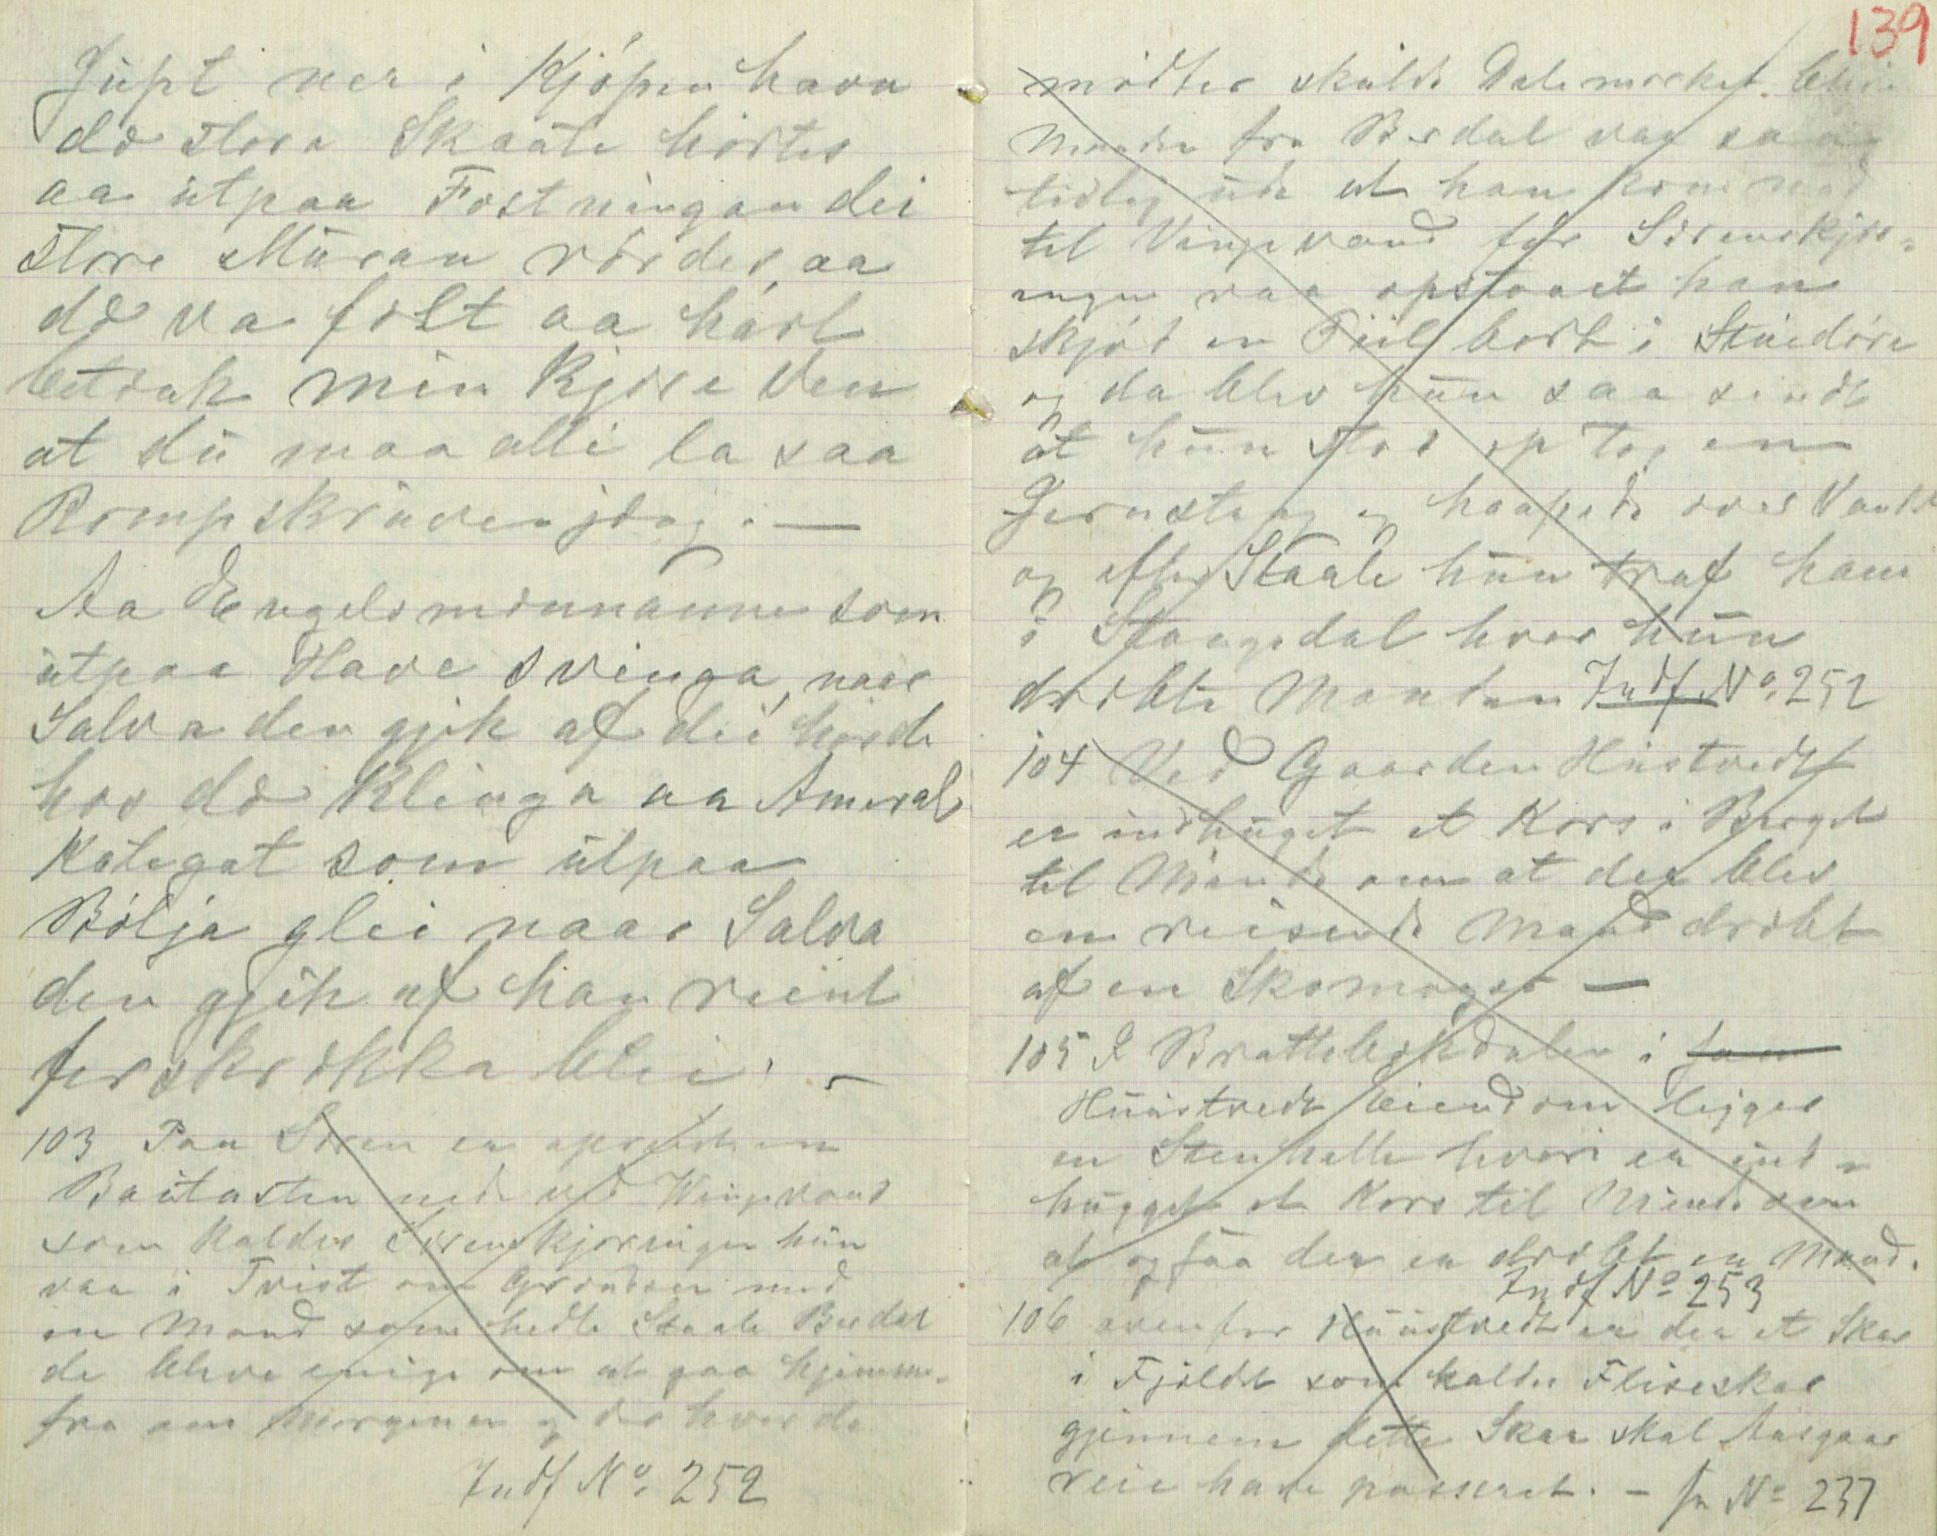 Jupt ner i Kjöpenhavn
dæ stora Skaate hörtes
aa utpaa Fæstningan dei
store Muran rördes, aa
dæ va følt aa hart
betænk min kjære Ven
at du maa alli la saa
Rompskruven jdag. —
Aa Engelsmænnanne som
utpaa Have svinga, naar
Salva den gjik af dei hørde
hor dæ klinga aa Ameral
Kategat som utpaa
Bölja glei naar Salva
den gjik af han reint
forskrækka blei. —
103 Paa Søren er opreist en
Bautasten nede ved Vinjevand
som kaldes Sørenskjæringen hun
var i Trist om Grændsen med
en Mand som hedte Staale Berdal
de bleve enige om at gaa hjemme-
fra om Morgenen og der hvor de
Indf No. 252
139
mødtes skulde Delemærket blive
Manden fra Berdal var saa
tidlig ude at han kom ned
til Vinjevand før Sørenskjær-
ingen var opstaaet han
skjöt en Piil bort i Stuedöra
og da blev hun saa sindt
at hun stod op tog en
Jernstang og haapede over Vandet
og efter Staale hun traf ham
i Stangedal hvor hun
dræbte Manden Indf No. 252
104 Ved Gaarden Hustvedt
er indhuget et Kors i Berget
til Minde om at der blev
en reisende Mand dræbt
af en Skomager —
105 I Brattebækdalen i
Huustvedt Eiendom ligger
en Stenhelle hvori er ind-
hugget et Kors til Minde om
at ogsaa der er dræbt en Mand.
Indf No 253
106 ovenfor Huustvedt er der et Skar
i Fjeldet som kaldes Fliseskar
gjennem dette Skar skal Aasgaar
reie have passeret. — In No 237